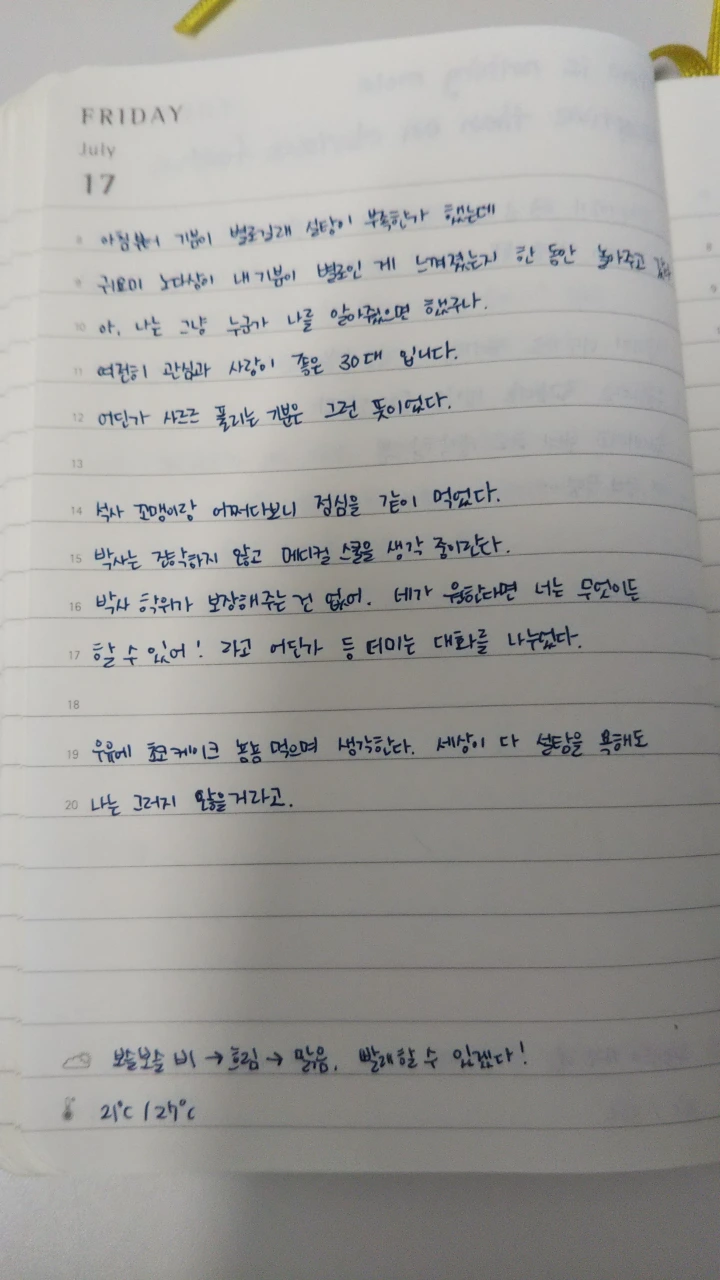 FRIDAY
July
17
8 아침부터 기분이 별로길래 설탕이 부족한가 했는데
9 귀요미 노다상이 내 기분이 별로인 게 느껴졌는지 한 동안 놀아주고 갔다
10 아, 나는 그냥 누군가 나를 알아줬으면 했구나.
11 여전히 관심과 사랑이 좋은 30대 입니다.
12 어딘가 사르르 풀리는 기분은 그런 뜻이었다.
13
14 석사 꼬맹이랑 어쩌다보니 점심을 같이 먹었다.
15 박사는 진학하지 않고 메디컬 스쿨을 생각 중이란다.
16 박사 학위가 보장해주는 건 없어. 네가 원한다면 너는 무엇이든
17 할 수 있어! 라고 어딘가 등 떠미는 대화를 나누었다.
18
19 우유에 초코케이크 퐁퐁 먹으며 생각한다. 세상이 다 설탕을 욕해도
20 나는 그러지 않을거라고.
보슬보슬 비 → 흐림 → 맑음. 빨래할 수 있겠다!
21°C / 27°C